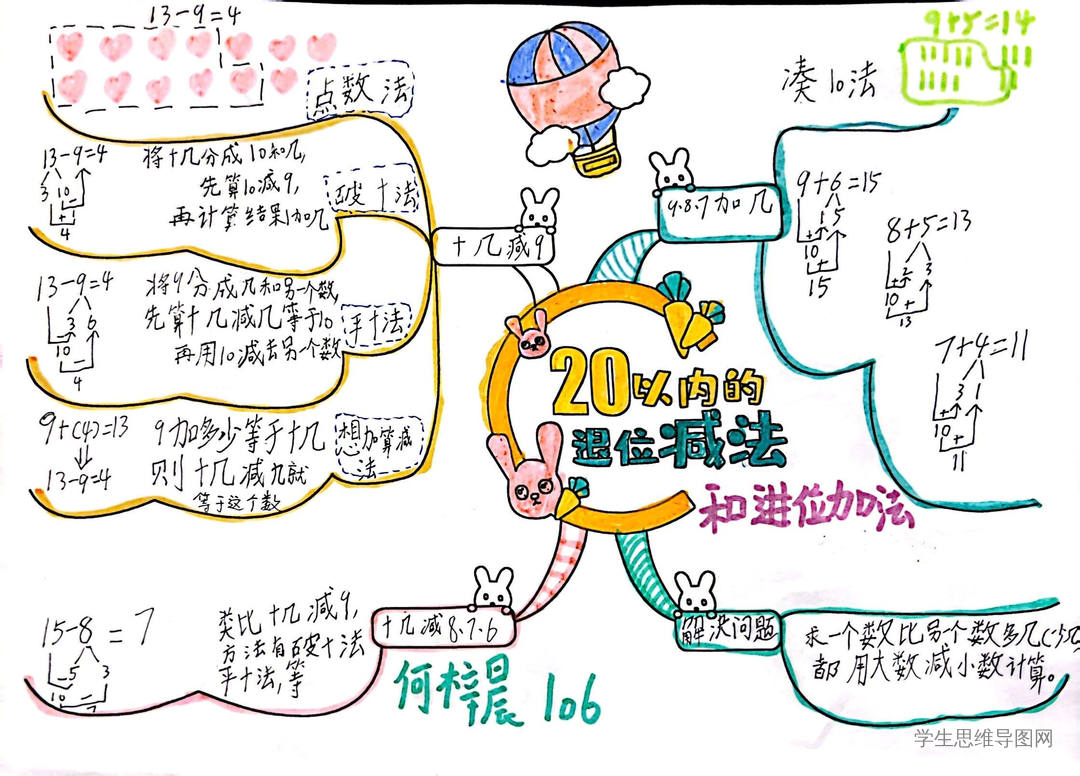 13-9=4
点数法
13-9=4
3 10
4
将十几分成10和几,
先算10减9,
再计算结果加几
破十法
13-9=4
3 6
10
4
将9分成几和另一个数
先算十几减几等于10
再用10减去另一个数
平十法
9+(4)=13
13-9=4
9加多少等于十几
则十几减九就
等于这个数
想加算减
法
十几减9
9.8.7加几
凑10法
9+5=14
9+6=15
1 5
10
15
8+5=13
2 3
10
13
7+4=11
3 1
10
11
20以内的
退位减法
和进位加法
十几减8.7.6
15-8=7
5 3
10
7
类比十几减9,
方法有破十法
平十法,等
解决问题
求一个数比另个数多几(少几)
都用大数减小数计算。
何梓晨 106
学生思维导图网